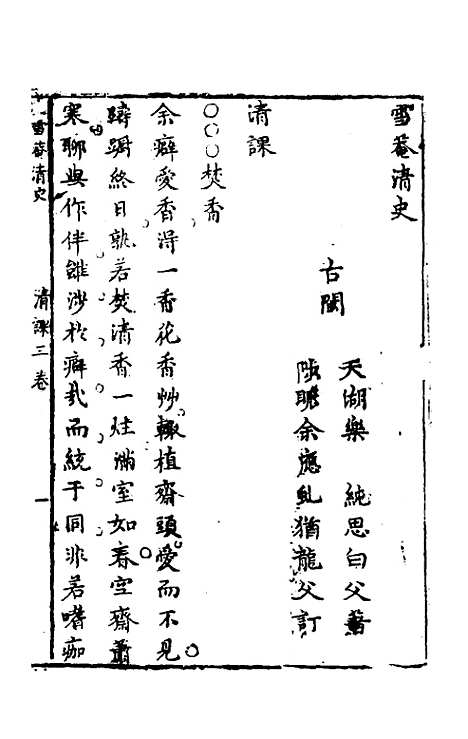 雪菴清史
古閩
天湖樂 純思白父著
陟瞻余應虬猶龍父訂
清課
○○○焚香
余癖愛香淂一香花香艸輙植齋頭愛而不見
躊躕終日孰若焚清香一炷滿室如春空齋蕭
寒聊與作伴雖涉於癖哉而統于同非若嗜痂
雪菴清史 清課三卷 一